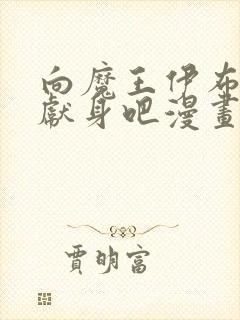 向魔王伊布
獻身吧漫畫
賈明富